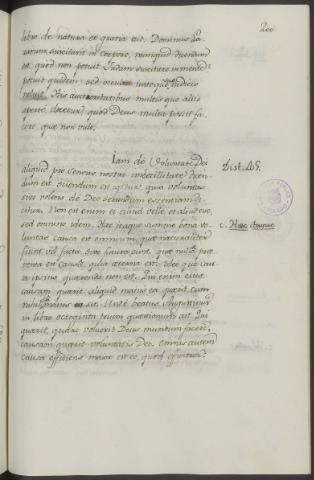 200
libro de natura et gratia ait. Dominus La-
zarum suscitavit in corpore, numquid dicendum
est, quod non potuit Iudam suscitare in mente?
potuit quidem, sed noluit
noluit. His auctoritatibus multisque aliis
aperte docetur, quod Deus multa possit fa-
cere, que non vult.
Iam de Voluntate Dei
Dist. 45.
aliquid pro sensus nostri imbecillitate dicen-
dum est. Sciendum est igitur quia voluntas
sive volens de Deo secundum essentiam di-
citur. Non est enim ei aliud velle, et aliud esse,
sed omnino idem. Hæc itaque summe bona vo-
c. Hæc itaque
luntas causa est omnium, quæ naturaliter
fiunt vel facta, sive futura sunt, quæ nulla præ-
venta est causa, quia æterna est. Ideo que cau-
sa ipsius quærenda non est. Qui enim eius
causam quærit, aliquid maius ea quærit, cum
nihil maius ea sit. Unde beatus Augustinus
in libro octoginta trium quæstionum ait. Qui
quærit, quare voluerit Deus mundum facere,
causam quærit voluntatis Dei. omnis autem
causa efficiens maior est eo, quod efficitur: